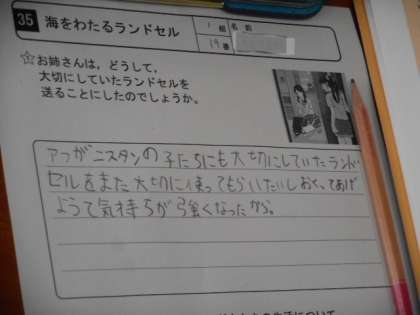 35 海をわたるランドセル
1 組 名前
19 番
☆お姉さんは、どうして、
大切にしていたランドセルを
送ることにしたのでしょうか。
アフガニスタンの子たちにも大切にしていたランド
セルをまた大切に使ってもらいたいしおくってあげ
ようて気持ちが強くなったから。